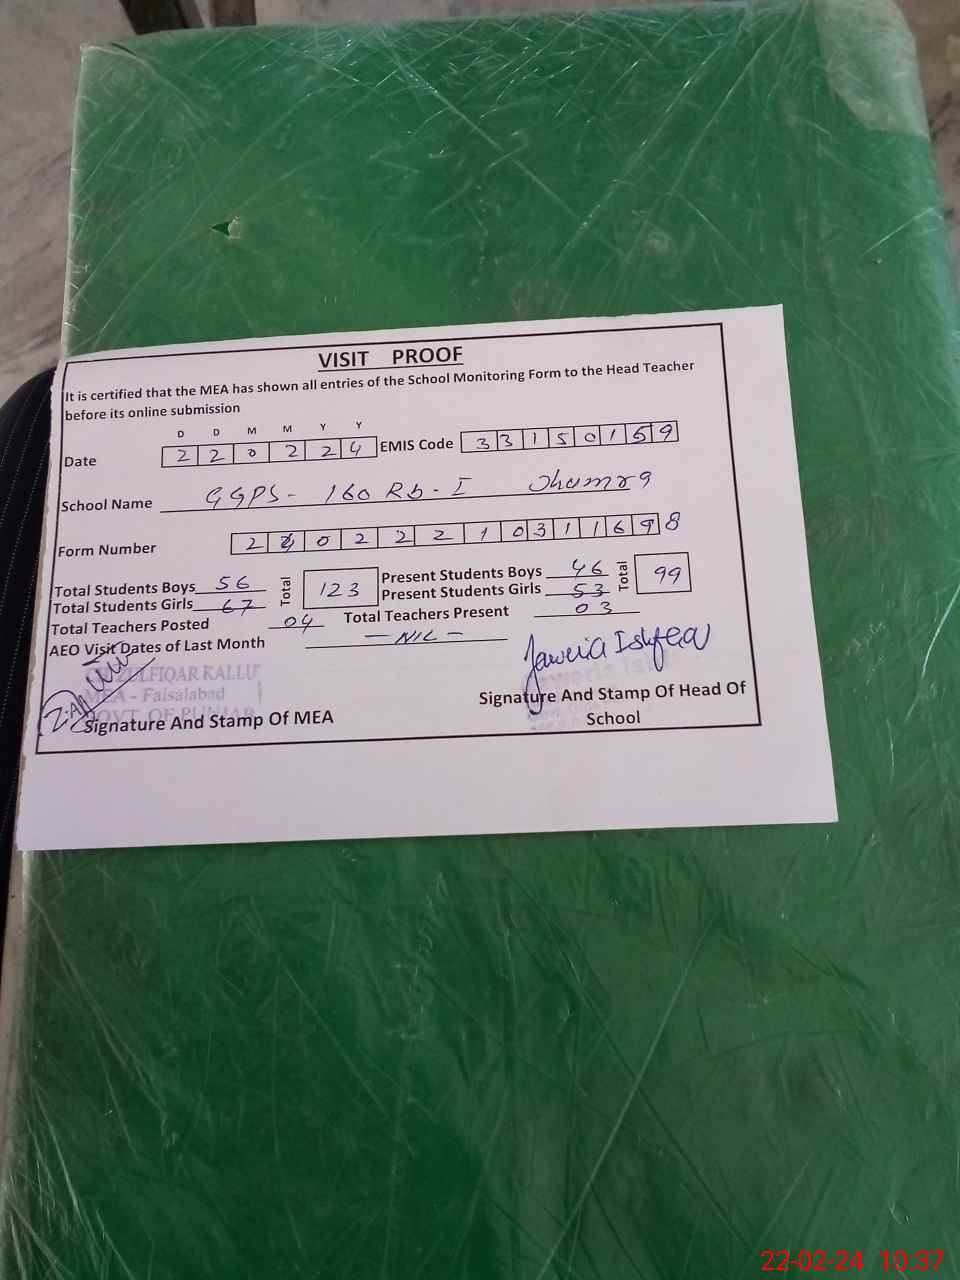 VISIT PROOF
It is certified that the MEA has shown all entries of the School Monitoring Form to the Head Teacher
before its online submission
D D M M Y Y
Date 2 2 0 2 2 4 EMIS Code 3 3 1 5 0 1 5 9
School Name GGPS - 160 Rb - I Jhumra
Form Number 2 4 0 2 2 2 1 0 3 1 1 6 9 8
Total Students Boys 56 Total 123 Present Students Boys 46 Total 99
Total Students Girls 67 Present Students Girls 53
Total Teachers Posted 04 Total Teachers Present 03
AEO Visit Dates of Last Month - NIL -
Javeria Ishfaq
ZULFIQAR KALLU
MEA - Faisalabad
GOVT. OF PUNJAB
Signature And Stamp Of MEA
Signature And Stamp Of Head Of
School
22-02-24 10:37